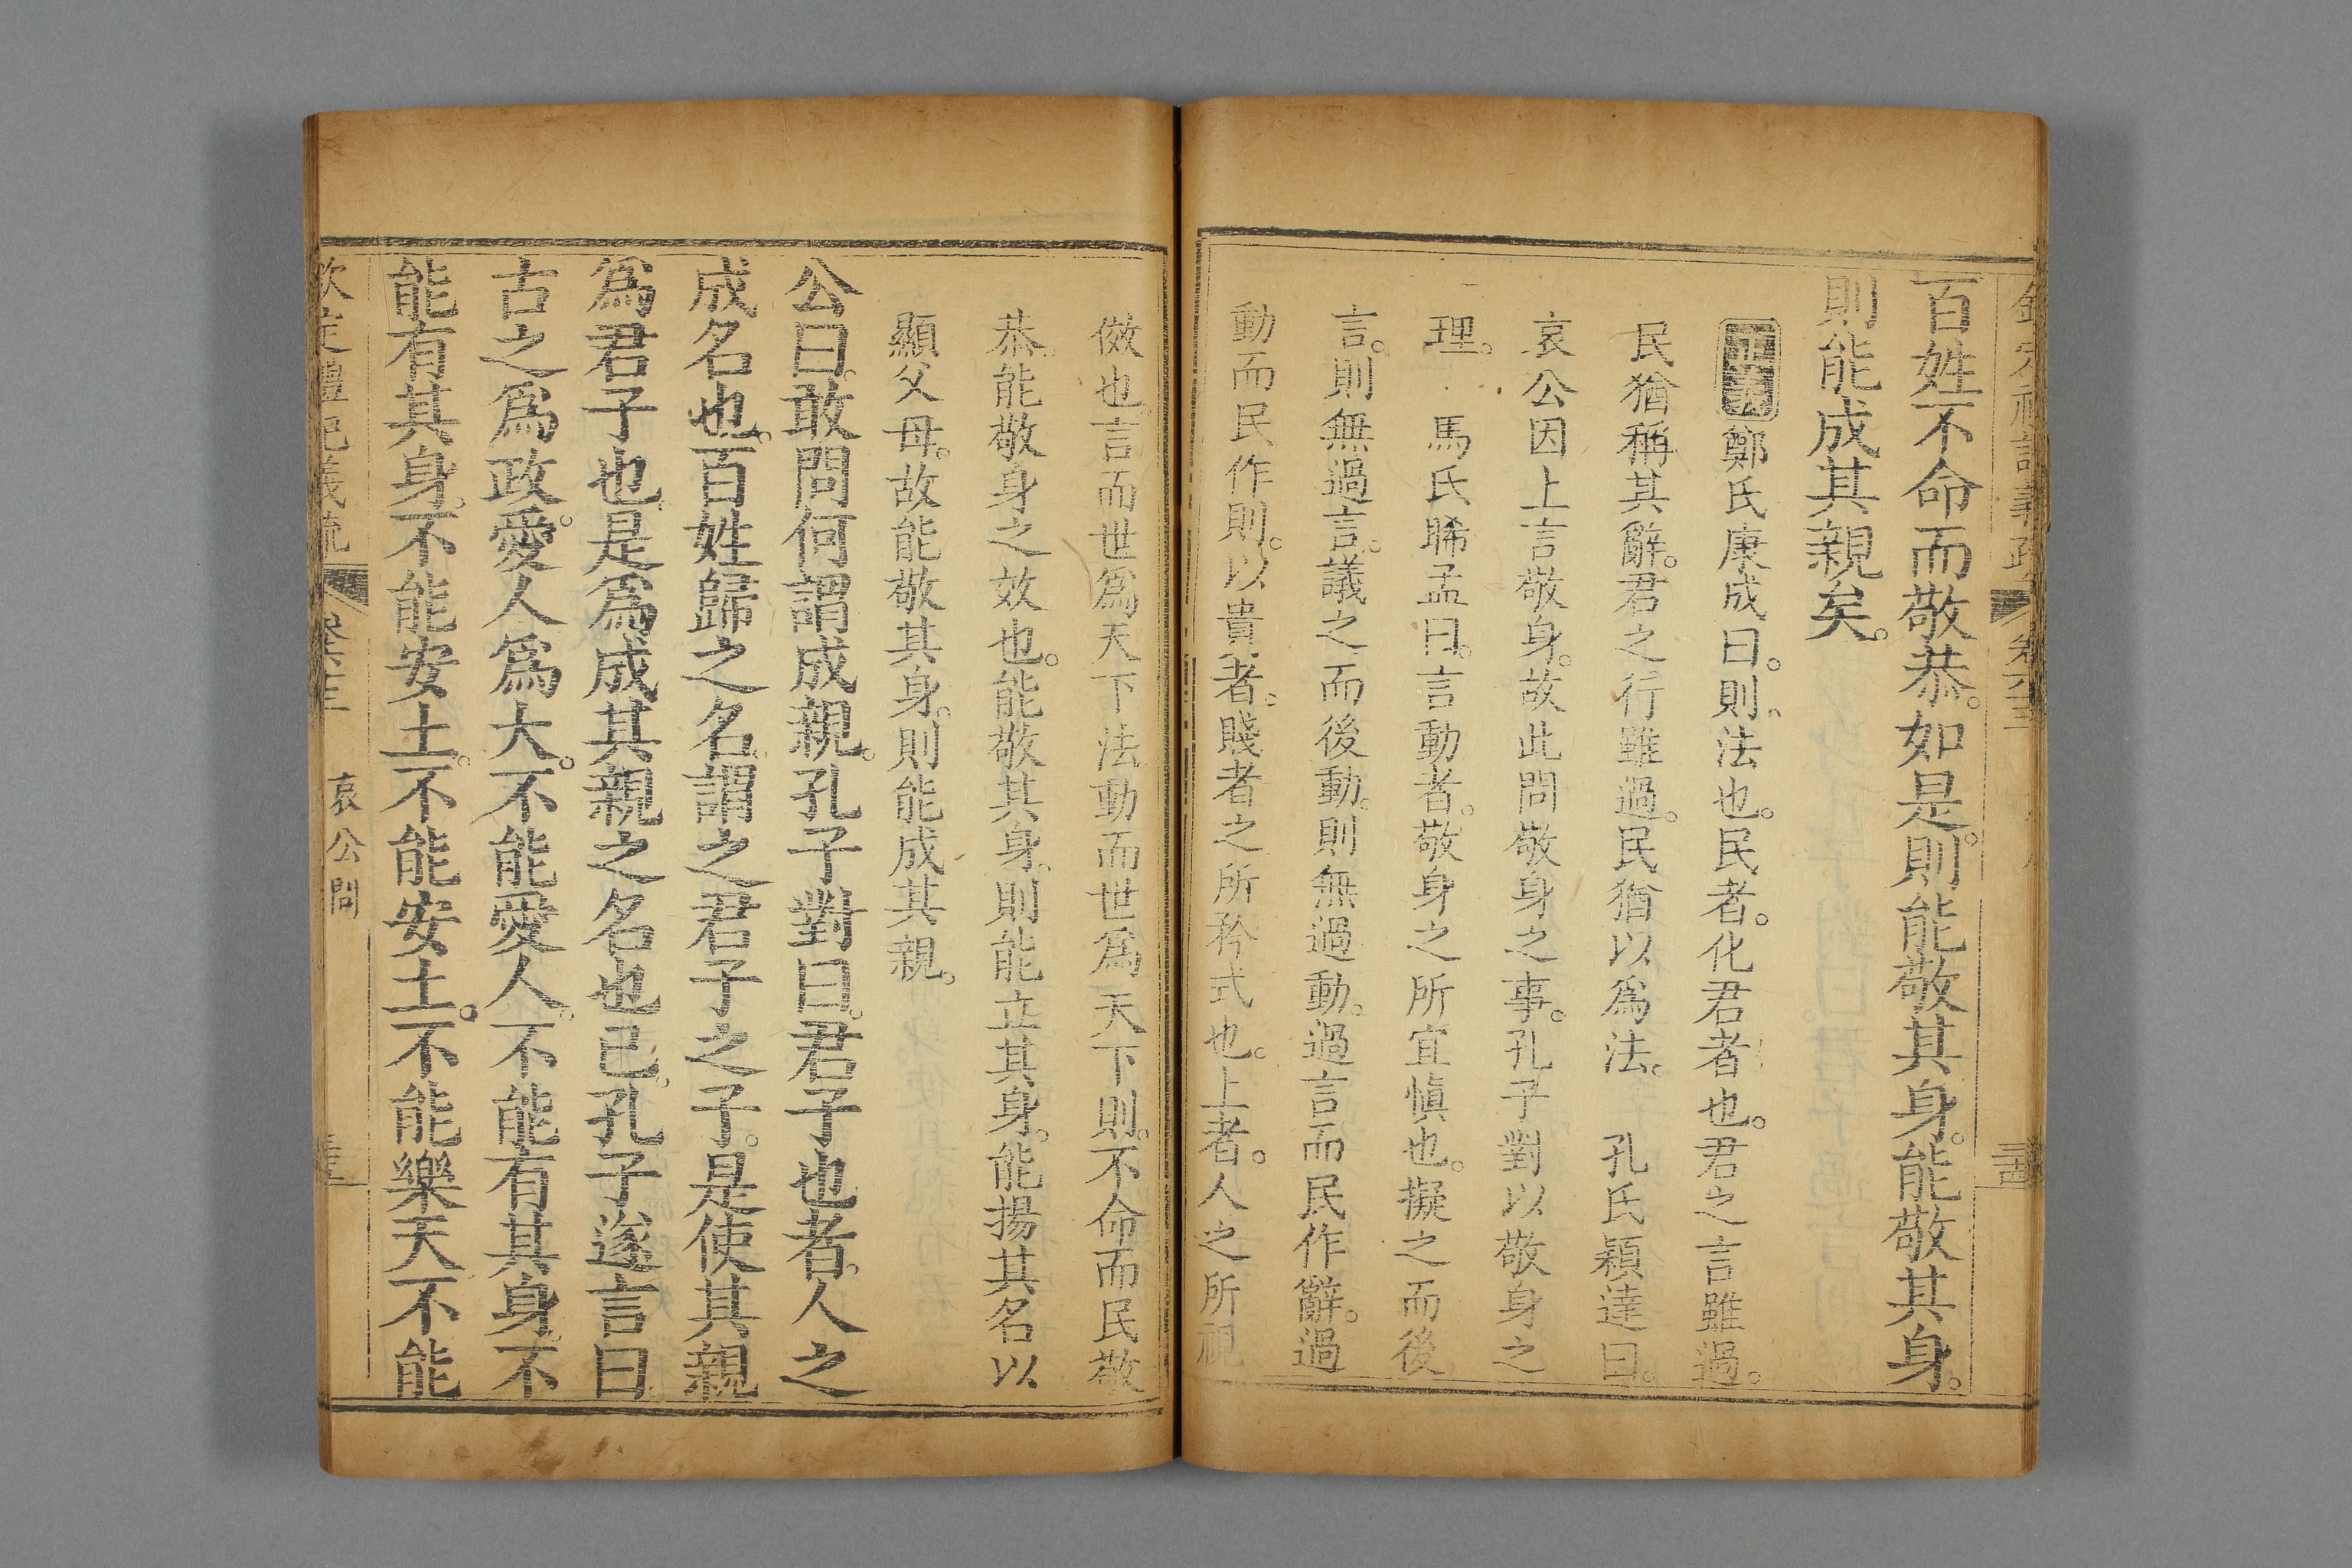 欽定禮記義疏 卷六十三
百姓不命而敬恭。如是。則能敬其身。能敬其身。
則能成其親矣。
正義 鄭氏康成曰。則。法也。民者。化君者也。君之言雖過。
民猶稱其辭。君之行雖過。民猶以爲法。 孔氏穎達曰。
哀公因上言敬身。故此問敬身之事。孔子對以敬身之
理。 馬氏睎孟曰。言動者。敬身之所宜愼也。擬之而後
言。則無過言。議之而後動。則無過動。過言而民作辭。過
動而民作則。以貴者。賤者之所矜式也。上者。人之所視
傚也。言而世爲天下法。動而世爲天下則。不命而民敬
恭。能敬身之效也。能敬其身。則能立其身。能揚其名以
顯父母。故能敬其身。則能成其親。
公曰。敢問何謂成親。孔子對曰。君子也者。人之
成名也。百姓歸之名。謂之君子之子。是使其親
爲君子也。是爲成其親之名也已。孔子遂言曰
古之爲政。愛人爲大。不能愛人。不能有其身。不
能有其身。不能安土。不能安土。不能樂天。不能
欽定禮記義疏 卷六十三 哀公問